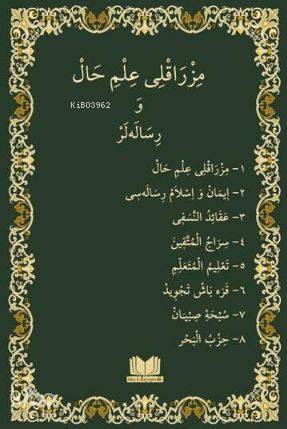 مِزْرَاقْلِى عِلْمِ حَالْ
KiB03962
وَ
رِسَالَه‌لَرْ
١- مِزْرَاقْلِى عِلْمِ حَالْ
٢- إِيمَانْ وَ إِسْلَامْ رِسَالَه‌سِى
٣- عَقَائِدُ النَّسَفِى
٤- سِرَاجُ الْمُتَّقِينَ
٥- تَعْلِيمُ الْمُتَعَلِّمِ
٦- قَرَه بَاشْ تَجْوِيدْ
٧- سُبْحَةِ صِبْيَانْ
٨- حِزْبُ الْبَحْر